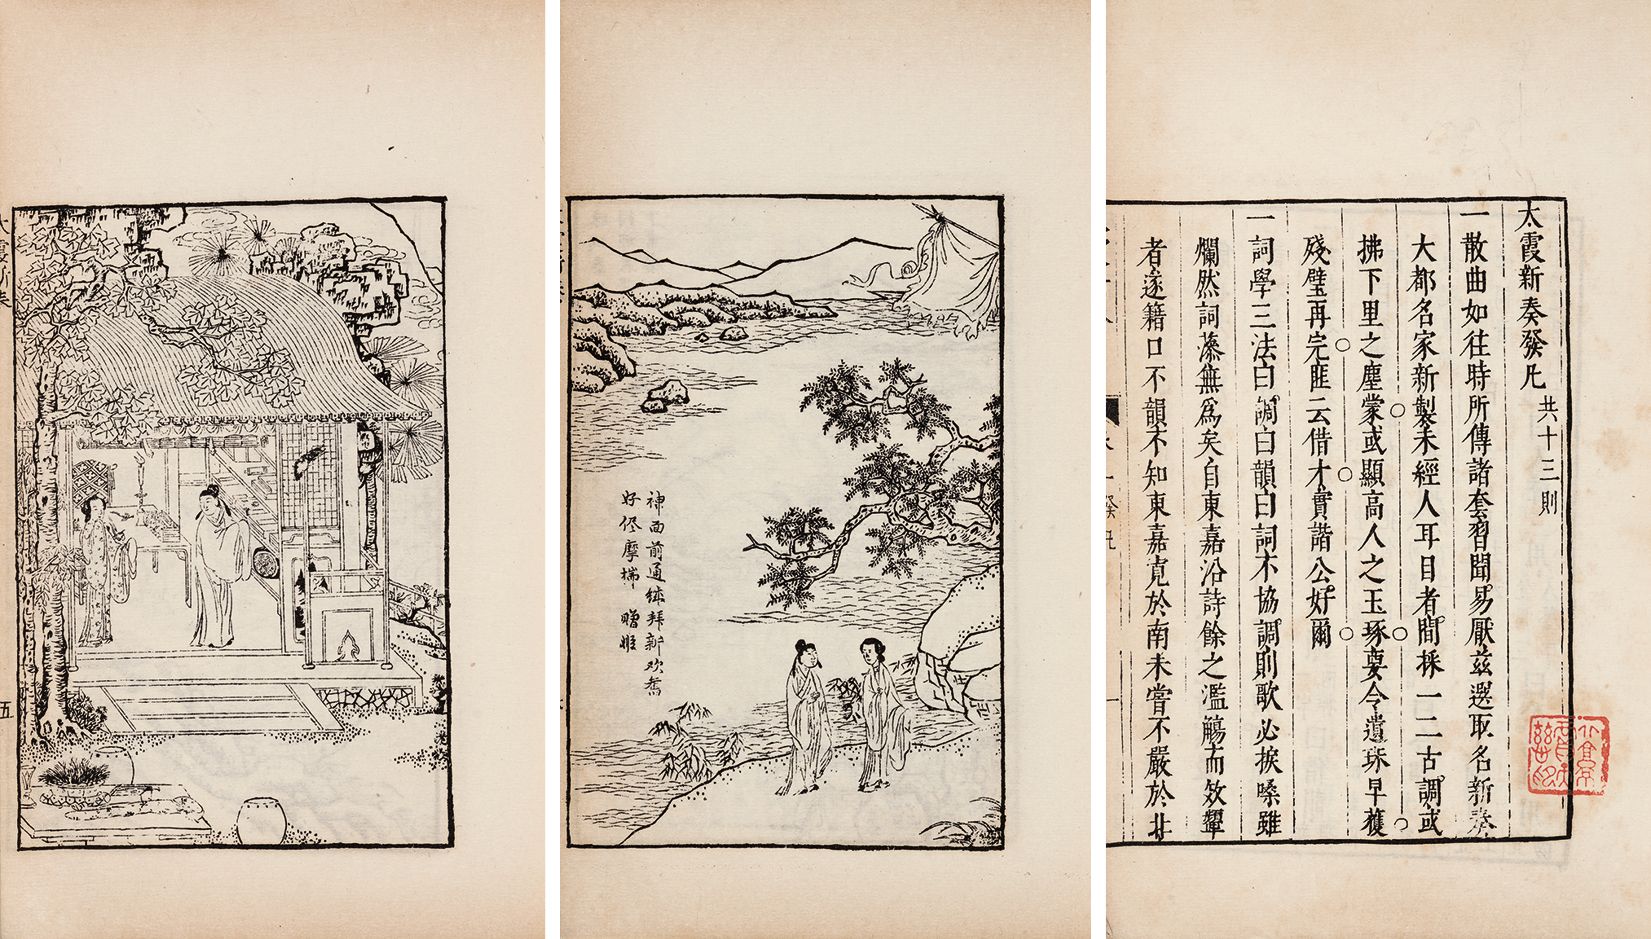 太霞新奏發凡 共十三則
一散曲如往時所傳諸套習聞易厭茲選取名新奏
大都名家新製未經人耳目者間採一二古調或
拂下里之塵蒙或顯高人之玉琢要令遺珠早獲
殘璧再完匪云借才實諧公好爾
一詞學三法曰調曰韻曰詞不協調則歌必捩嗓雖
爛然詞藻無爲矣自東嘉沿詩餘之濫觴而效顰
者遂籍口不韻不知東嘉寬於南未嘗不嚴於北
神前通拜新欢喬
好摩揣 贈姬
太霞新奏
五